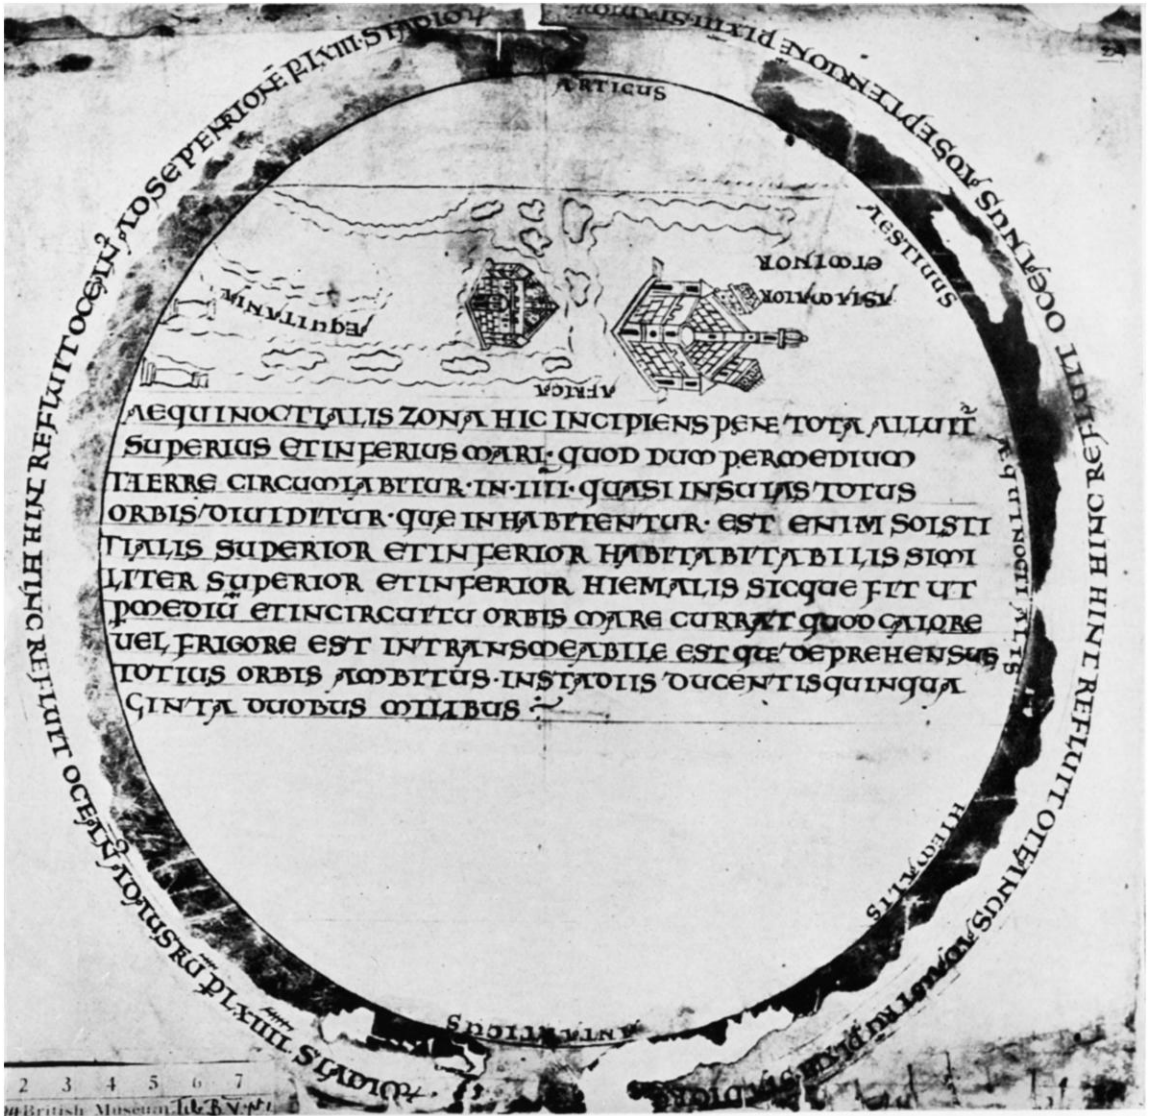 ARTICUS
SOLSTITIALIS
ASIA MAIOR
ET MINOR
EQUITANIA
AFRICA
AEQUINOCTIALIS ZONA HIC INCIPIENS PENE TOTA ALLUIT̃
SUPERIUS ET INFERIUS MARI· QUOD DUM PER MEDIUM
TAERRE CIRCUMLABITUR· IN· IIII· QUASI INSULAS TOTUS
ORBIS DIUIDITUR· QUE INHABITENTUR· EST ENIM SOLSTI
TIALIS SUPERIOR ET INFERIOR HABITABITABILIS SIMI
LITER SUPERIOR ET INFERIOR HIEMALIS SICQUE FIT UT
P MEDIŪ ET IN CIRCUITU ORBIS MARE CURRAT QUOD CALORE
UEL FRIGORE EST INTRANSMEABILE ESTQUE DEPREHENSUS
TOTIUS ORBIS AMBITUS· IN STADIIS DUCENTIS QUINQUA
GINTA DUOBUS MILIBUS
AEQUINOCTIALIS
HIEMALIS
ANTARTICUS
HINC REFLUIT OCEANUS AD SEPTENTRIONE P LXIII STADIORU
HINC REFLUIT OCEAN
HINT REFLUIT OCEANUS
2 3 4 5 6 7
British Museum